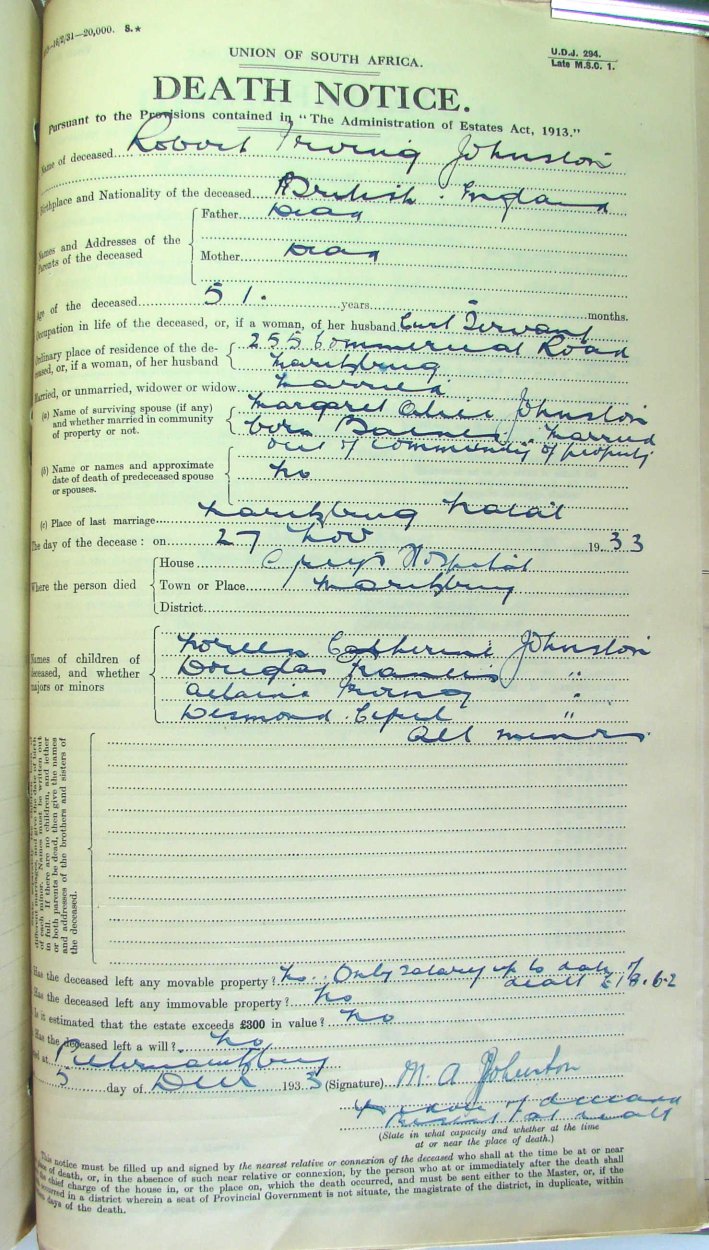 16/2/31—20,000. S.*
U.D.J. 294.
Late M.S.C. 1.
UNION OF SOUTH AFRICA.
DEATH NOTICE.
Pursuant to the Provisions contained in "The Administration of Estates Act, 1913."
Name of deceased Robert Irving Johnston
Birthplace and Nationality of the deceased British. England
Names and Addresses of the Parents of the deceased
Father Dead
Mother Dead
Age of the deceased 51. years - months.
Occupation in life of the deceased, or, if a woman, of her husband Civil Servant
Ordinary place of residence of the deceased, or, if a woman, of her husband
255 Commercial Road
Maritzburg
Married, or unmarried, widower or widow Married
(a) Name of surviving spouse (if any) and whether married in community of property or not.
Margaret Johnston
born married
out of community of property
(b) Name or names and approximate date of death of predeceased spouse or spouses.
No
(c) Place of last marriage Maritzburg Natal
The day of the decease : on 27 Nov 1933
Where the person died
House Greys Hospital
Town or Place Maritzburg
District
Names of children of deceased, and whether majors or minors
Noreen Catherine Johnston
Douglas Francis "
Irving "
Desmond Cyril "
All minors
in full. If there are no children, and either
or both parents be dead, then give the names
and addresses of the brothers and sisters of
the deceased.
Has the deceased left any movable property? No. Only salary up to date of
death £18.6.2
Has the deceased left any immovable property? No
Is it estimated that the estate exceeds £300 in value? No
Has the deceased left a will? No
Dated at Pietermaritzburg
5 day of Dec 1933 (Signature) M A Johnston
Widow of deceased
Present at death
(State in what capacity and whether at the time
at or near the place of death.)
This notice must be filled up and signed by the nearest relative or connexion of the deceased who shall at the time be at or near
place of death, or, in the absence of such near relative or connexion, by the person who at or immediately after the death shall
the chief charge of the house in, or the place on, which the death occurred, and must be sent either to the Master, or, if the
occurred in a district wherein a seat of Provincial Government is not situate, the magistrate of the district, in duplicate, within
days of the death.